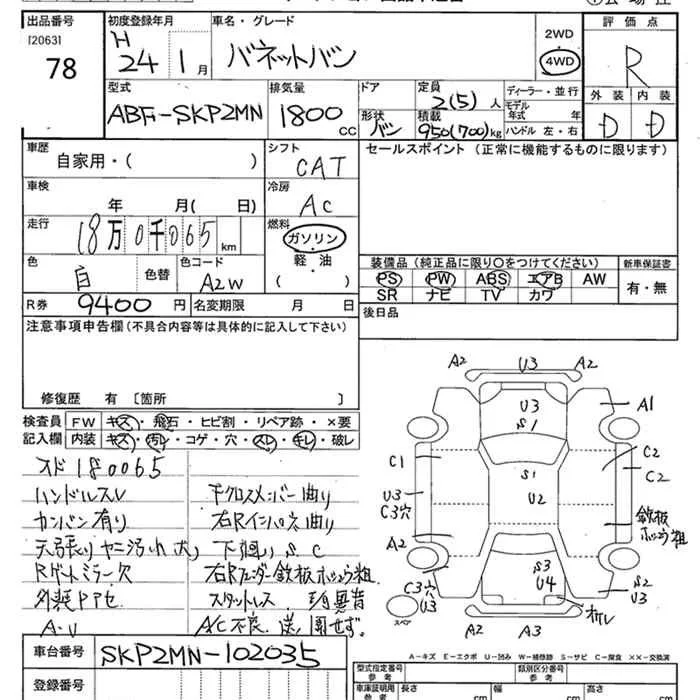 出品番号
[2063]
78
初度登録年月
H
24 1 月
車名・グレード
バネットバン
2WD
4WD
評価点
R
型式
ABF-SKP2MN
排気量
1800
CC
ドア
形状
バン
定員
2(5) 人
積載
950(700)kg
ディーラー・並行
モデル
年式 年
ハンドル 左・右
外装 内装
D D
車歴
自家用・( )
シフト
CAT
セールスポイント (正常に機能するものに限ります)
車検
年 月( 日)
冷房
AC
走行
18万0千065 km
燃料
ガソリン
軽・油
( )
色
白
色替
色コード
A2W
装備品 (純正品に限り〇をつけてください)
PS PW ABS エアB AW
SR ナビ TV カワ
新車保証書
有・無
R券 9400 円
名変期限 月 日
後日品
注意事項申告欄(不具合内容等は具体的に記入して下さい)
修復歴 有 〔箇所 〕
検査員
記入欄
FW キズ・飛石・ヒビ割・リペア跡・×要
内装 キズ・汚レ・コゲ・穴・スレ・キレ・破レ
スド180065
ハンドルスレ
カンバン有り
天張りヤニ汚れ大
Rゲートミラー欠
外装PPセ
A・U
干クロスメンバー曲り
右Rインパネ曲り
下廻り S.C
右Rフェンダー鉄板ボッコウ粗
スタットレス
A/C不良
A2 U3 A2
U3
S1
A1
C1
S1
C2
C2
U3
C3穴
U2
鉄板
ボッコウ粗
A2
S3
U4
C3穴
U3
スペア
S2
U3
オレ
A2 A3
A-キズ E-エクボ U-凹み W-補修跡 S-サビ C-腐食 XX-交換済
車台番号
SKP2MN-102035
登録番号
型式指定番号
参考
類別区分番号
参考
車庫証明用
参考
長さ cm
幅 cm
高さ cm